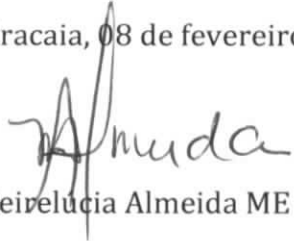 racaia, 08 de fevereiro
Almeida
eirelúcia Almeida ME